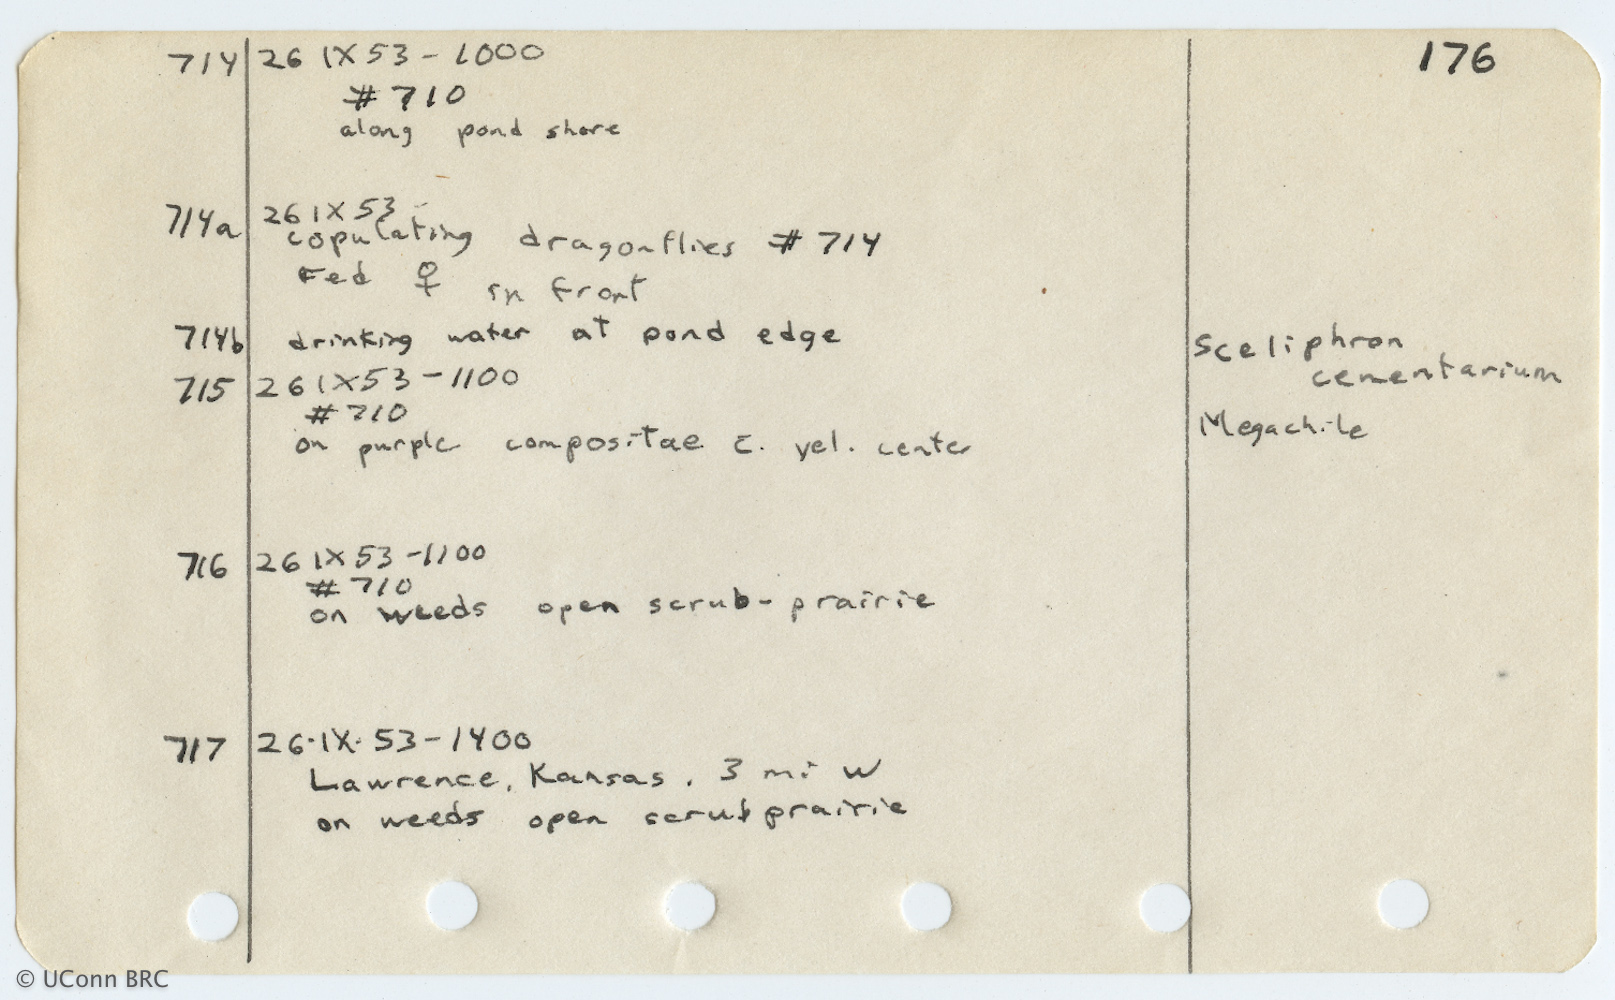 176
714 26 IX 53 - 1000
# 710
along pond shore
714a 26 IX 53 -
copulating dragonflies # 714
Fed ♀ in front
714b drinking water at pond edge Sceliphron
cementarium
715 26 IX 53 - 1100
# 710
on purple compositae c̄. yel. center Megachile
716 26 IX 53 - 1100
# 710
on weeds open scrub-prairie
717 26·IX·53 - 1400
Lawrence, Kansas, 3 mi W
on weeds open scrub prairie
© UConn BRC